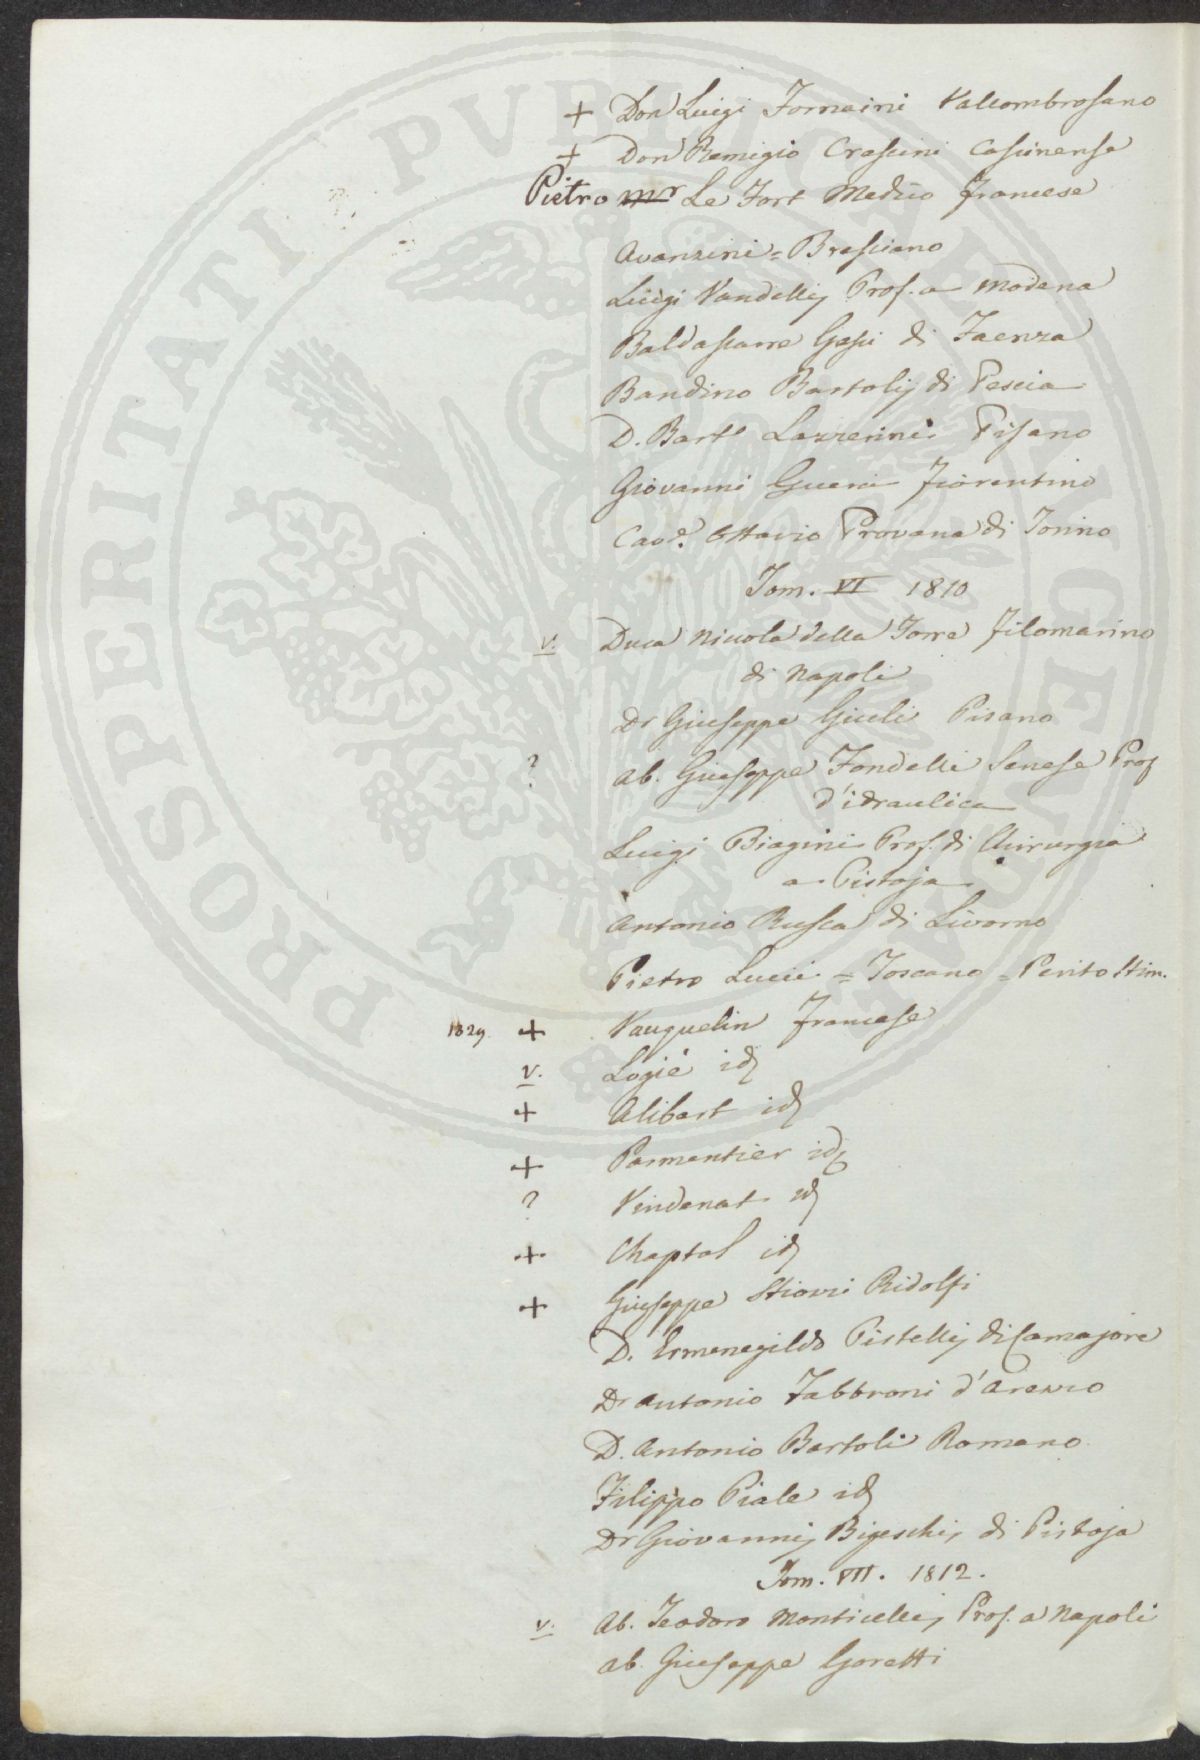 + Don Luigi Fornaini Vallombrosano
+ Don Remigio Crescini Casinense
Pietro Mr Le Fort Medico francese
Avanzini = Bresciano
Luigi Vandellij Prof. a Modena
Baldassarre Gessi di Faenza
Bandino Bartolij di Pescia
D. Barto Lazzerini Pisano
Giovanni Guerri fiorentino
Cave. Ottavio Provana di Torino
Tom. VI 1810
v. Duca Niccola della Torre filomarino
di Napoli
Dr Giuseppe Giuli Pisano
? Ab. Giuseppe Fondelli Senese Prof
d'idraulica
Luigi Biagini Prof. di Chirurgia
a Pistoja
Antonio Rusca di Livorno
Pietro Lucii = Toscano = Perito Stim.
1829. + Vauquelin francese
v. Logié id
+ Alibert id
+ Parmentier id
? Vindenat id
+ Chaptal id
+ Giuseppe Stiozzi Ridolfi
D. Ermenegildo Pistellij di Camajore
Dr Antonio Fabbroni d'Arezzo
D. Antonio Bartoli Romano
Filippo Piale id
Dr Giovannij Bigeschi, di Pistoja
Tom. VII. 1812.
v. Ab. Teodoro Monticellij Prof. a Napoli
Ab. Giuseppe Goretti
PROSPERITATI PVBLICAE AVGENDAE